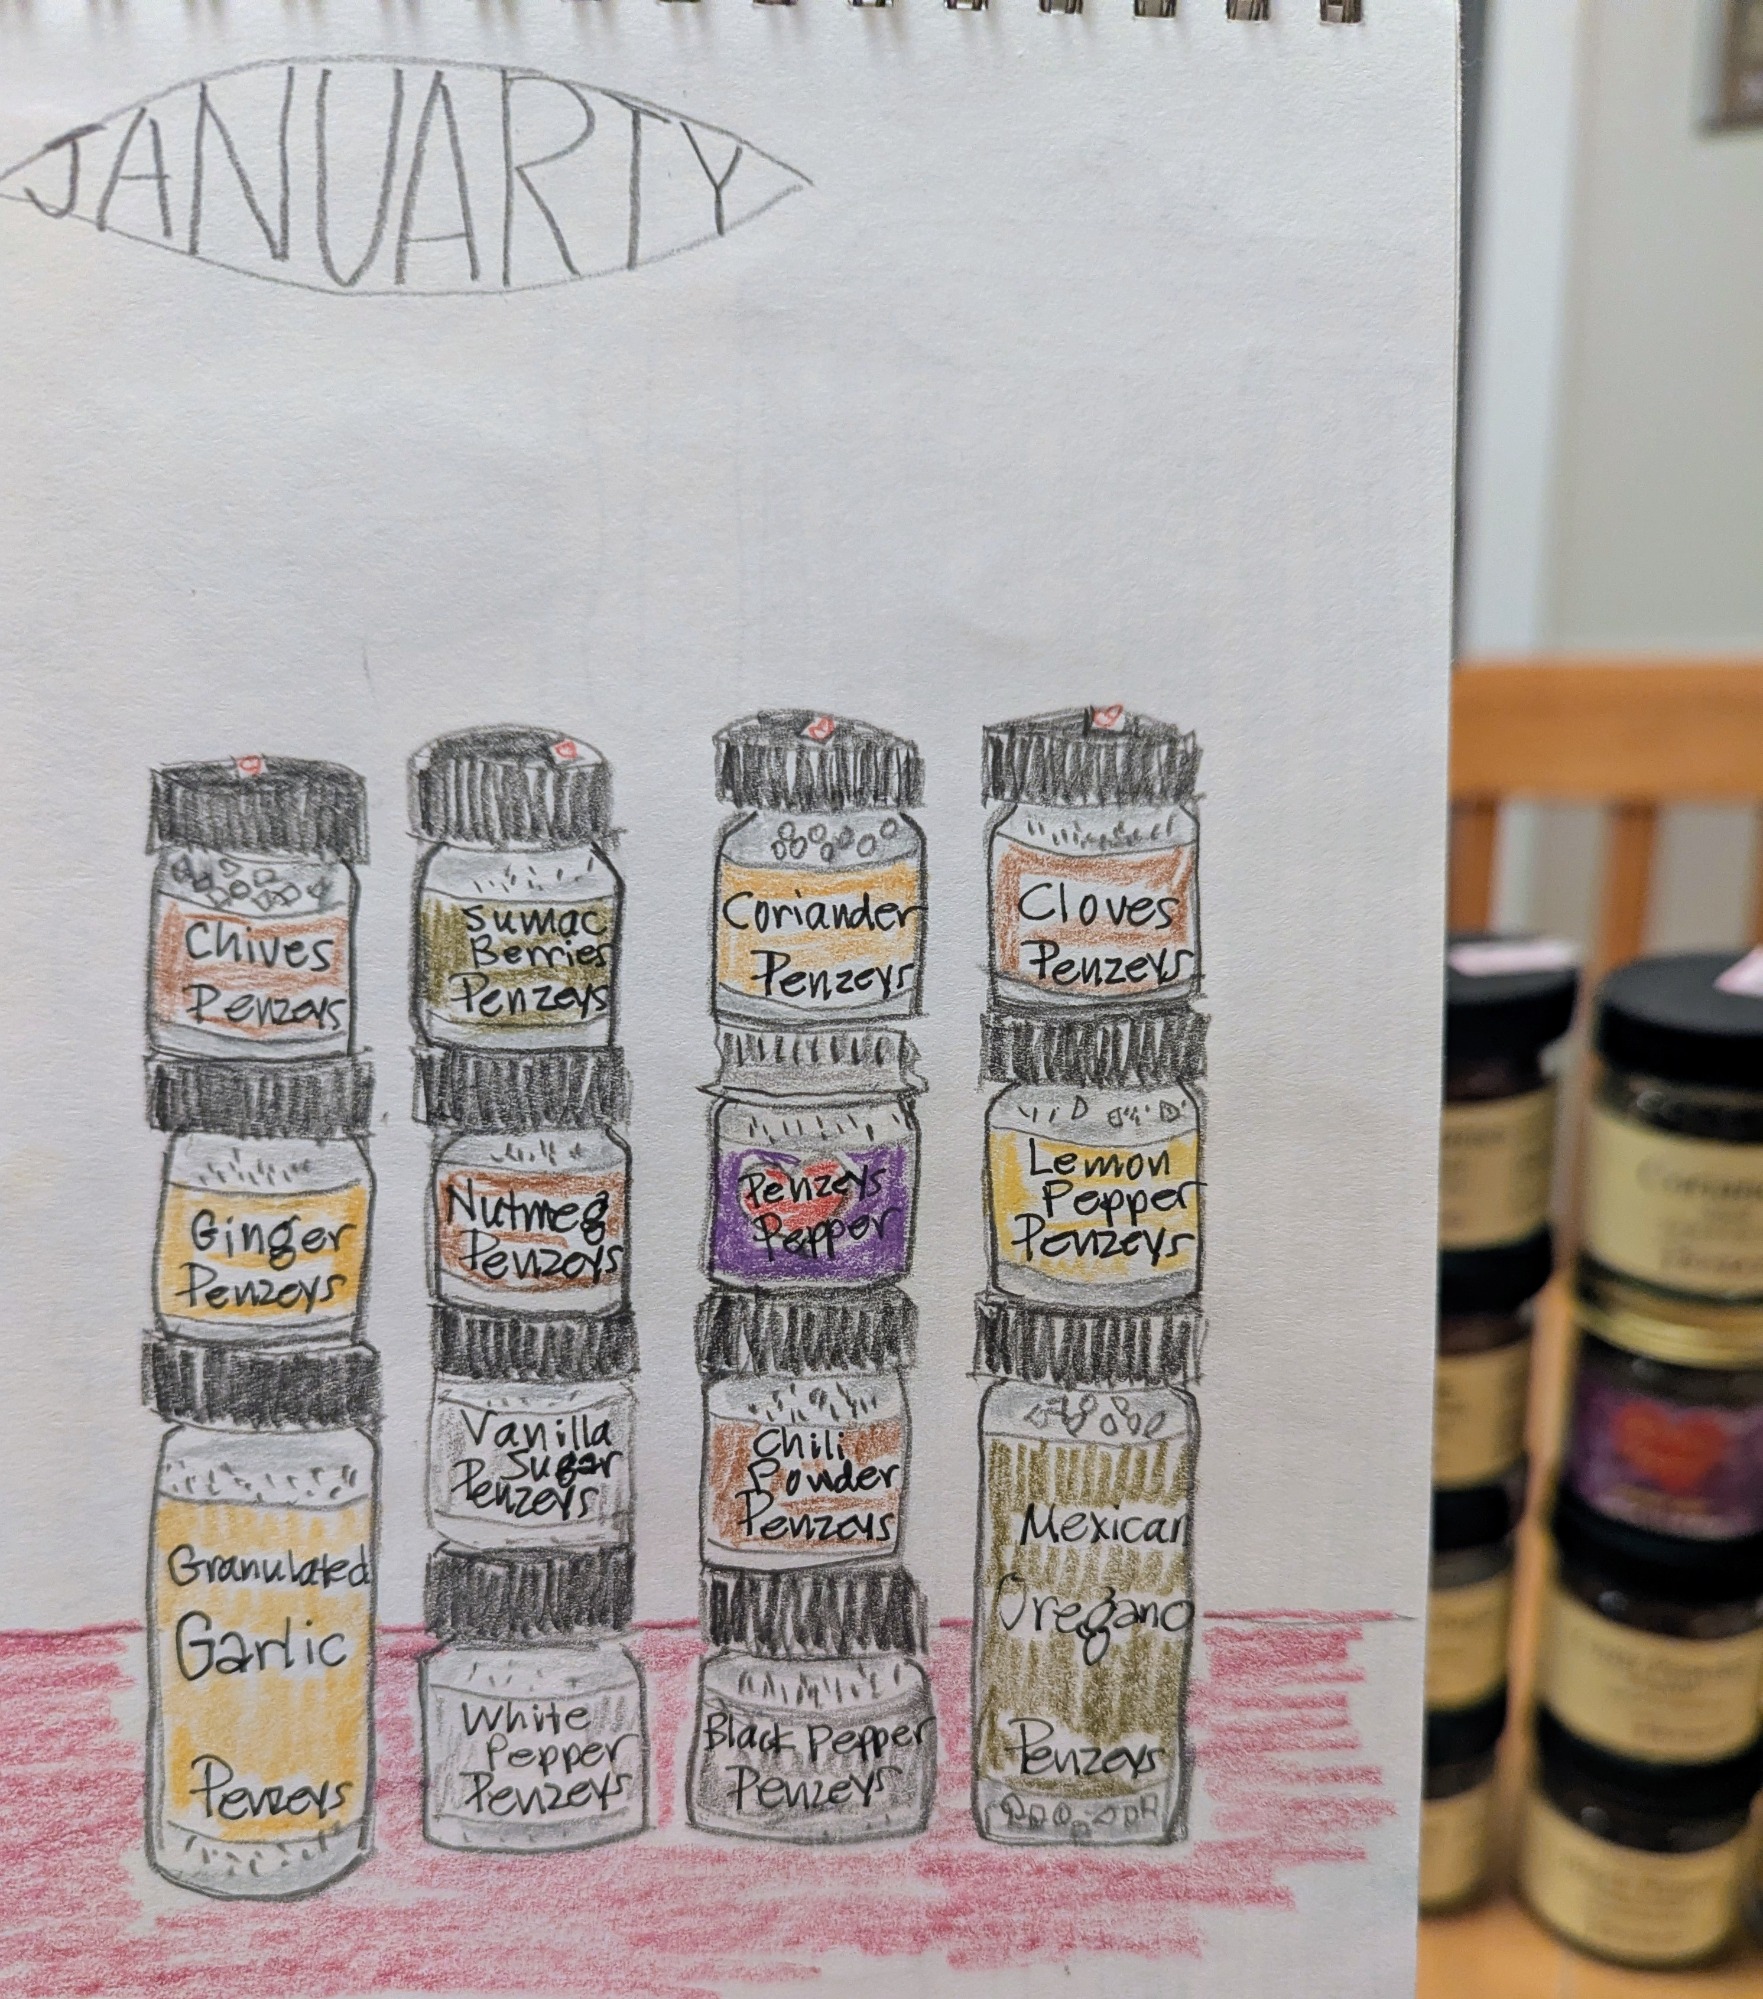 JANUARTY
Chives
Penzeys
Ginger
Penzeys
Granulated
Garlic
Penzeys
Sumac
Berries
Penzeys
Nutmeg
Penzeys
Vanilla
Sugar
Penzeys
White
Pepper
Penzeys
Coriander
Penzeys
Penzeys
Pepper
Chili
Powder
Penzeys
Black Pepper
Penzeys
Cloves
Penzeys
Lemon
Pepper
Penzeys
Mexican
Oregano
Penzeys